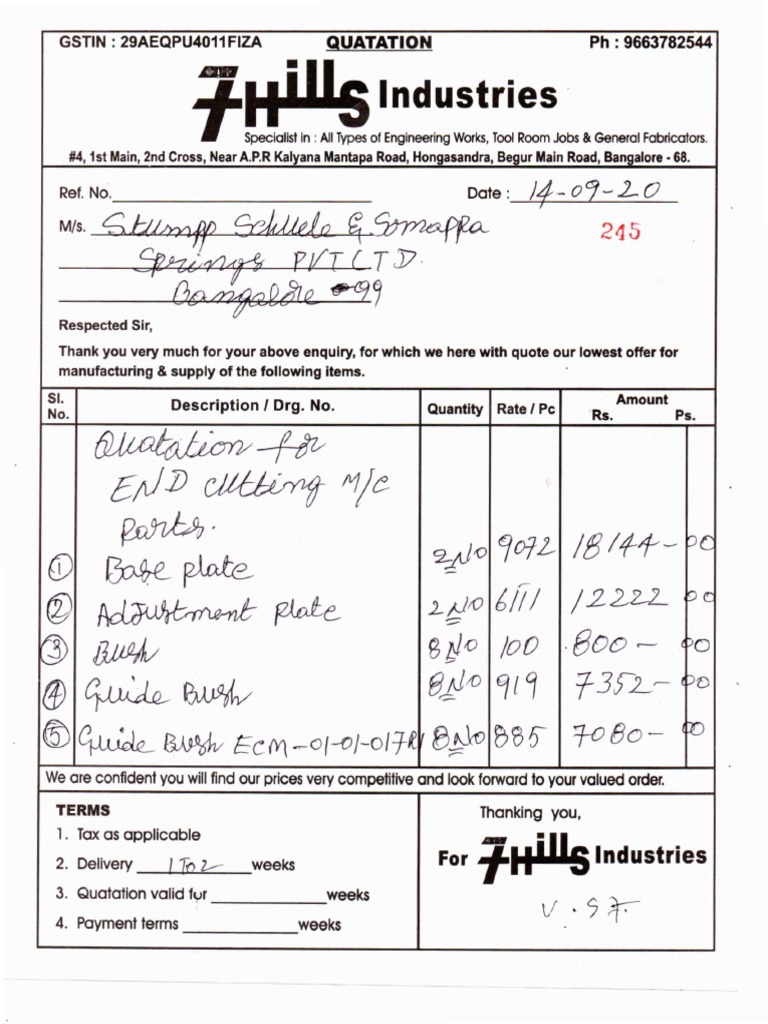 GSTIN : 29AEQPU4011FIZA QUATATION Ph : 9663782544
7 Hills Industries
Specialist in : All Types of Engineering Works, Tool Room Jobs & General Fabricators.
#4, 1st Main, 2nd Cross, Near A.P.R Kalyana Mantapa Road, Hongasandra, Begur Main Road, Bangalore - 68.
Ref. No. Date : 14-09-20
M/s. Stumpp Schuele & Somappa 245
Springs PVT LTD.
Bangalore - 99
Respected Sir,
Thank you very much for your above enquiry, for which we here with quote our lowest offer for
manufacturing & supply of the following items.
Sl. No. Description / Drg. No. Quantity Rate / Pc Amount Rs. Ps.
Quatation for
END cutting M/c
Parts.
1 Base plate 2 NO 9072 18144 - 00
2 Adjustment Plate 2 NO 6111 12222 00
3 Bush 8 NO 100 800 - 00
4 Guide Bush 8 NO 919 7352 - 00
5 Guide Bush ECM-01-01-017R1 8 NO 885 7080 - 00
We are confident you will find our prices very competitive and look forward to your valued order.
TERMS Thanking you,
1. Tax as applicable
2. Delivery 1 To 2 weeks For 7 Hills Industries
3. Quatation valid for weeks
4. Payment terms weeks